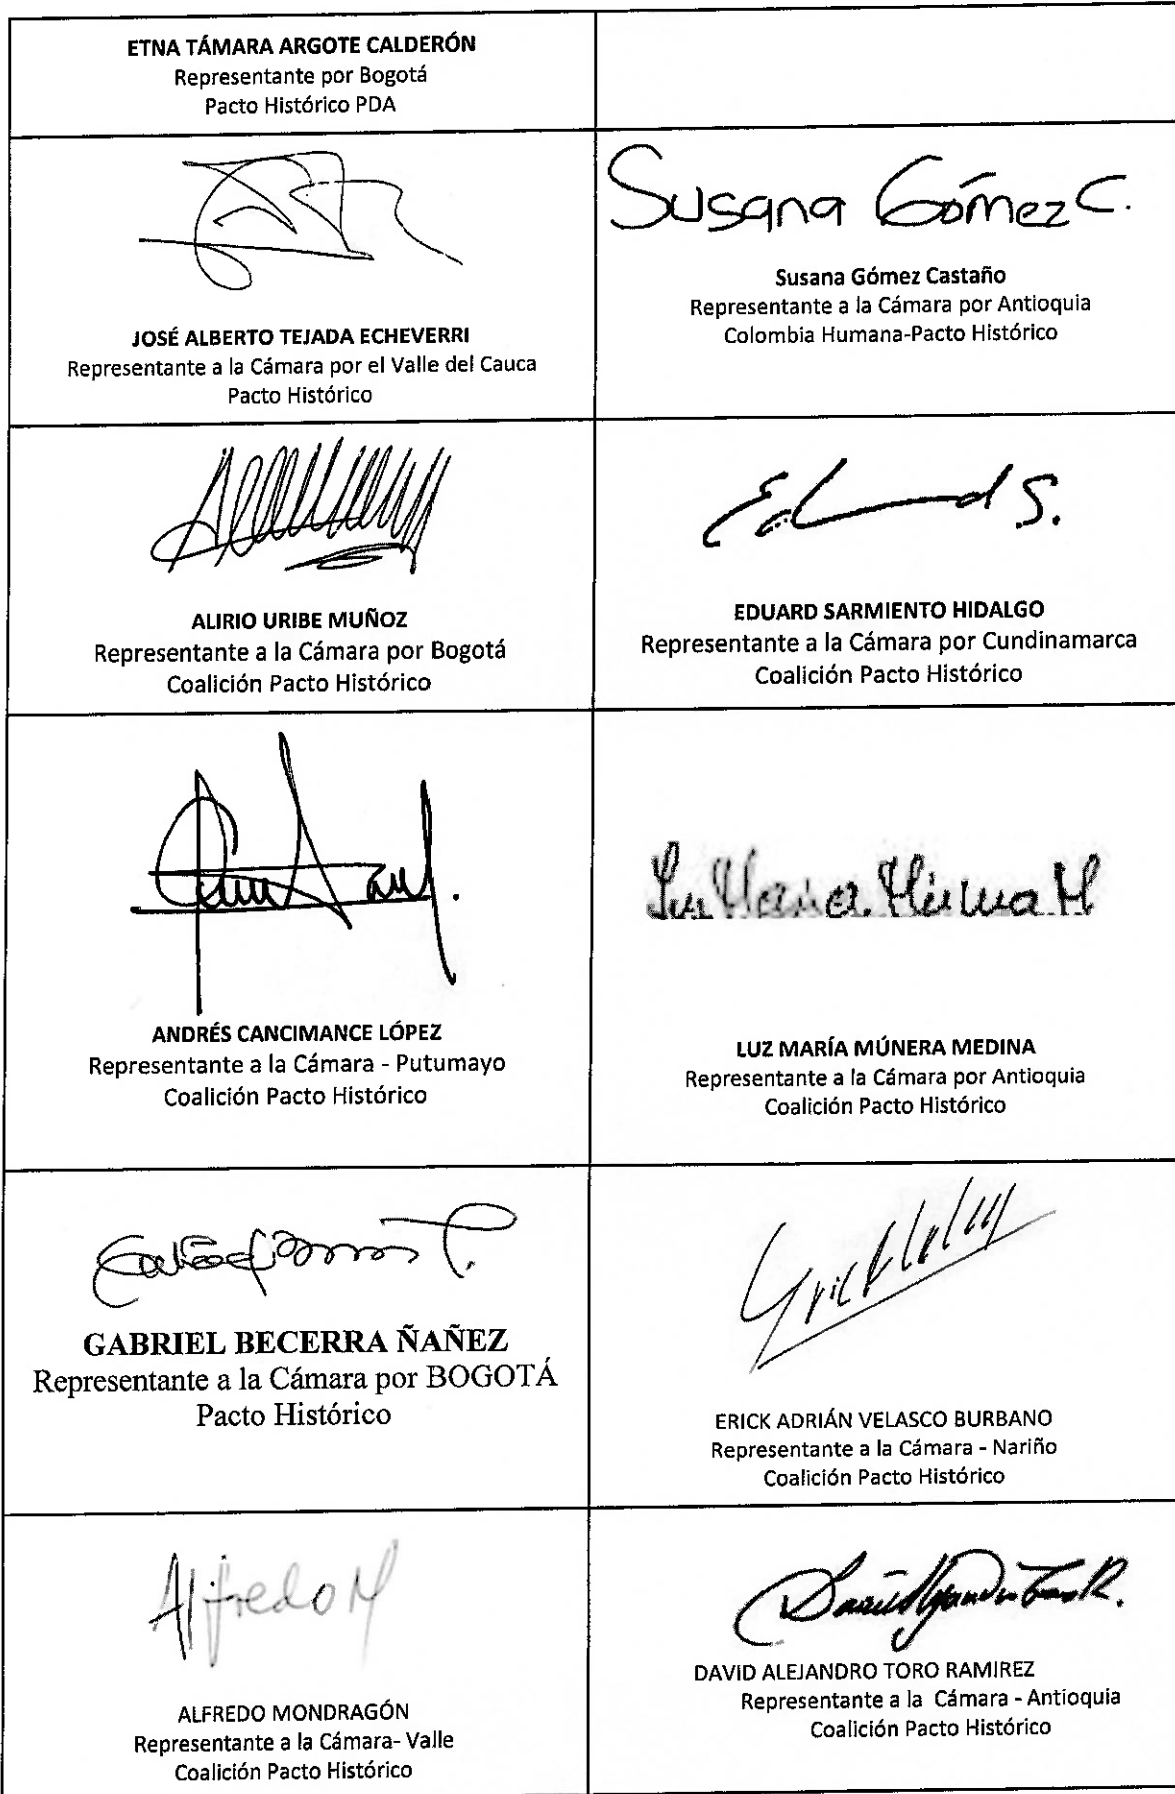 ETNA TÁMARA ARGOTE CALDERÓN
Representante por Bogotá
Pacto Histórico PDA
JOSÉ ALBERTO TEJADA ECHEVERRI
Representante a la Cámara por el Valle del Cauca
Pacto Histórico
Susana Gómez C.
Susana Gómez Castaño
Representante a la Cámara por Antioquia
Colombia Humana-Pacto Histórico
ALIRIO URIBE MUÑOZ
Representante a la Cámara por Bogotá
Coalición Pacto Histórico
Eduard S.
EDUARD SARMIENTO HIDALGO
Representante a la Cámara por Cundinamarca
Coalición Pacto Histórico
ANDRÉS CANCIMANCE LÓPEZ
Representante a la Cámara - Putumayo
Coalición Pacto Histórico
Luz María Múnera M
LUZ MARÍA MÚNERA MEDINA
Representante a la Cámara por Antioquia
Coalición Pacto Histórico
GABRIEL BECERRA ÑAÑEZ
Representante a la Cámara por BOGOTÁ
Pacto Histórico
ERICK ADRIÁN VELASCO BURBANO
Representante a la Cámara - Nariño
Coalición Pacto Histórico
Alfredo M
ALFREDO MONDRAGÓN
Representante a la Cámara- Valle
Coalición Pacto Histórico
David Alejandro Toro R.
DAVID ALEJANDRO TORO RAMIREZ
Representante a la Cámara - Antioquia
Coalición Pacto Histórico